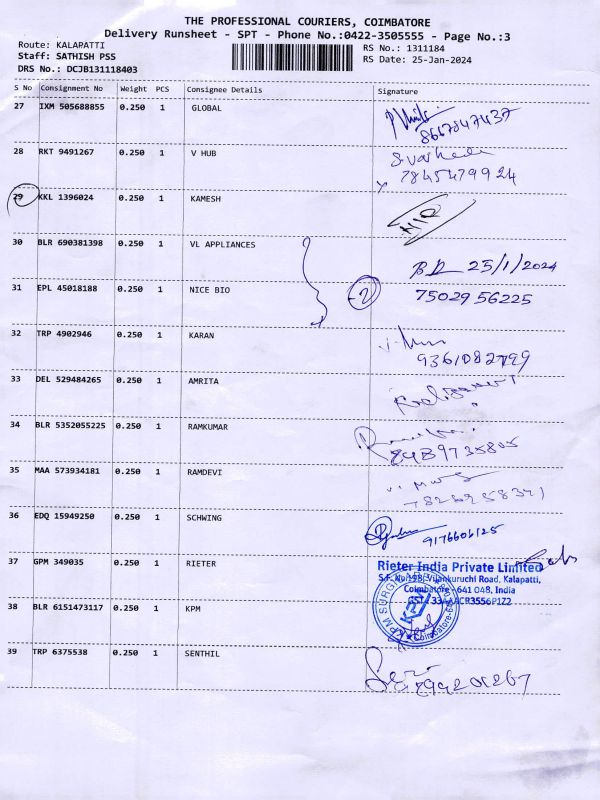 THE PROFESSIONAL COURIERS, COIMBATORE
Delivery Runsheet - SPT - Phone No.:0422-3505555 - Page No.:3
Route: KALAPATTI
Staff: SATHISH PSS
DRS No.: DCJB131118403
RS No.: 1311184
RS Date: 25-Jan-2024
S No Consignment No Weight PCS Consignee Details Signature
27 IXM 505688855 0.250 1 GLOBAL
8667847437
28 RKT 9491267 0.250 1 V HUB
7845479924
29 KKL 1396024 0.250 1 KAMESH
30 BLR 690381398 0.250 1 VL APPLIANCES
25/1/2024
31 EPL 45018188 0.250 1 NICE BIO
75029 56225
32 TRP 4902946 0.250 1 KARAN
9361082799
33 DEL 529484265 0.250 1 AMRITA
34 BLR 5352055225 0.250 1 RAMKUMAR
35 MAA 573934181 0.250 1 RAMDEVI
36 EDQ 15949250 0.250 1 SCHWING
9176606125
37 GPM 349035 0.250 1 RIETER
Rieter India Private Limited
S.F. No:198, Vilankuruchi Road, Kalapatti,
Coimbatore - 641 048, India
38 BLR 6151473117 0.250 1 KPM
39 TRP 6375538 0.250 1 SENTHIL